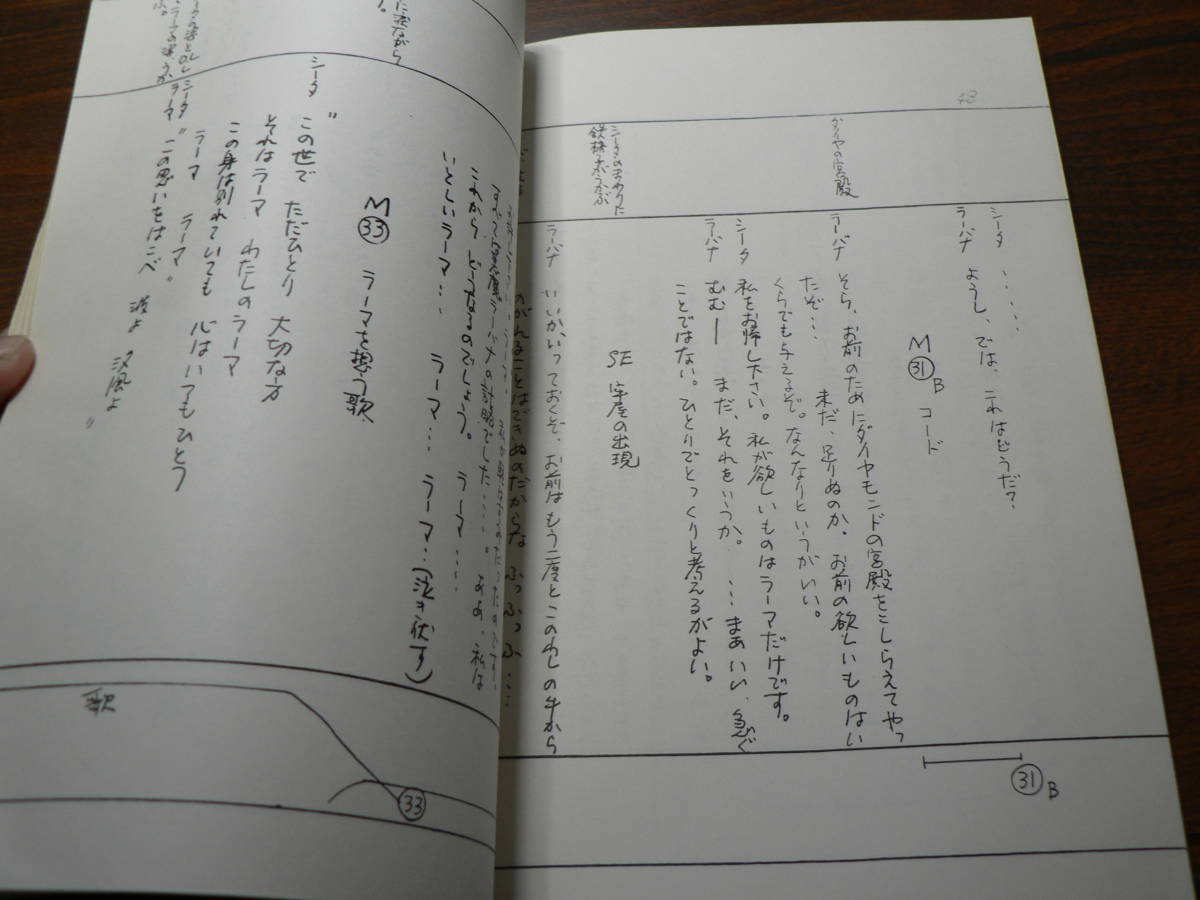 48
ダイヤの宮殿
シータのまわりに
鉄格子がうかぶ
シータ ・・・・・
ラーバナ ようし、では、これはどうだ?
M㉛B コード
ラーバナ そら、お前のためにダイヤモンドの宮殿をこしらえてやっ
たぞ・・・ 未だ、足りぬのか。お前の欲しいものはい
くらでも与えるぞ。なんなりというがいい。
シータ 私をお帰し下さい。私が欲しいものはラーマだけです。
ラーバナ むむー まだ、それをいうか。 ・・・まあいい、急ぐ
ことではない。ひとりでとっくりと考えるがよい。
SE 牢屋の出現
ラーバナ いいか、いっておくぞ、お前はもう二度とこのわしの手から
のがれることはできぬのだからな ふっふっふ・・・
㉛B
すべては 魔、ラーバナの計略でした・・・・。 ああ、私は
これから どうなるのでしょう。 ラーマ・・・・
いとしいラーマ・・・ ラーマ・・・ ラーマ・・(泣き伏す)
M㉝ ラーマを想う歌
シータ "この世で ただひとり 大切な方
それはラーマ わたしのラーマ
この身は別れていても 心はいつもひとつ
ラーマ ラーマ"
シータ
ラーマ "この思いをはこべ 波よ 風よ"
に 流ながら
歌
㉝